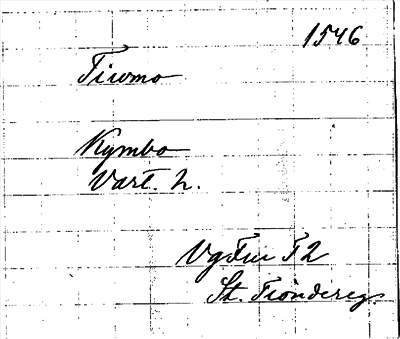 1546
Tiwmo
Kymbo
Vart. h.
Vg Fui T2
St. Tiondereg.